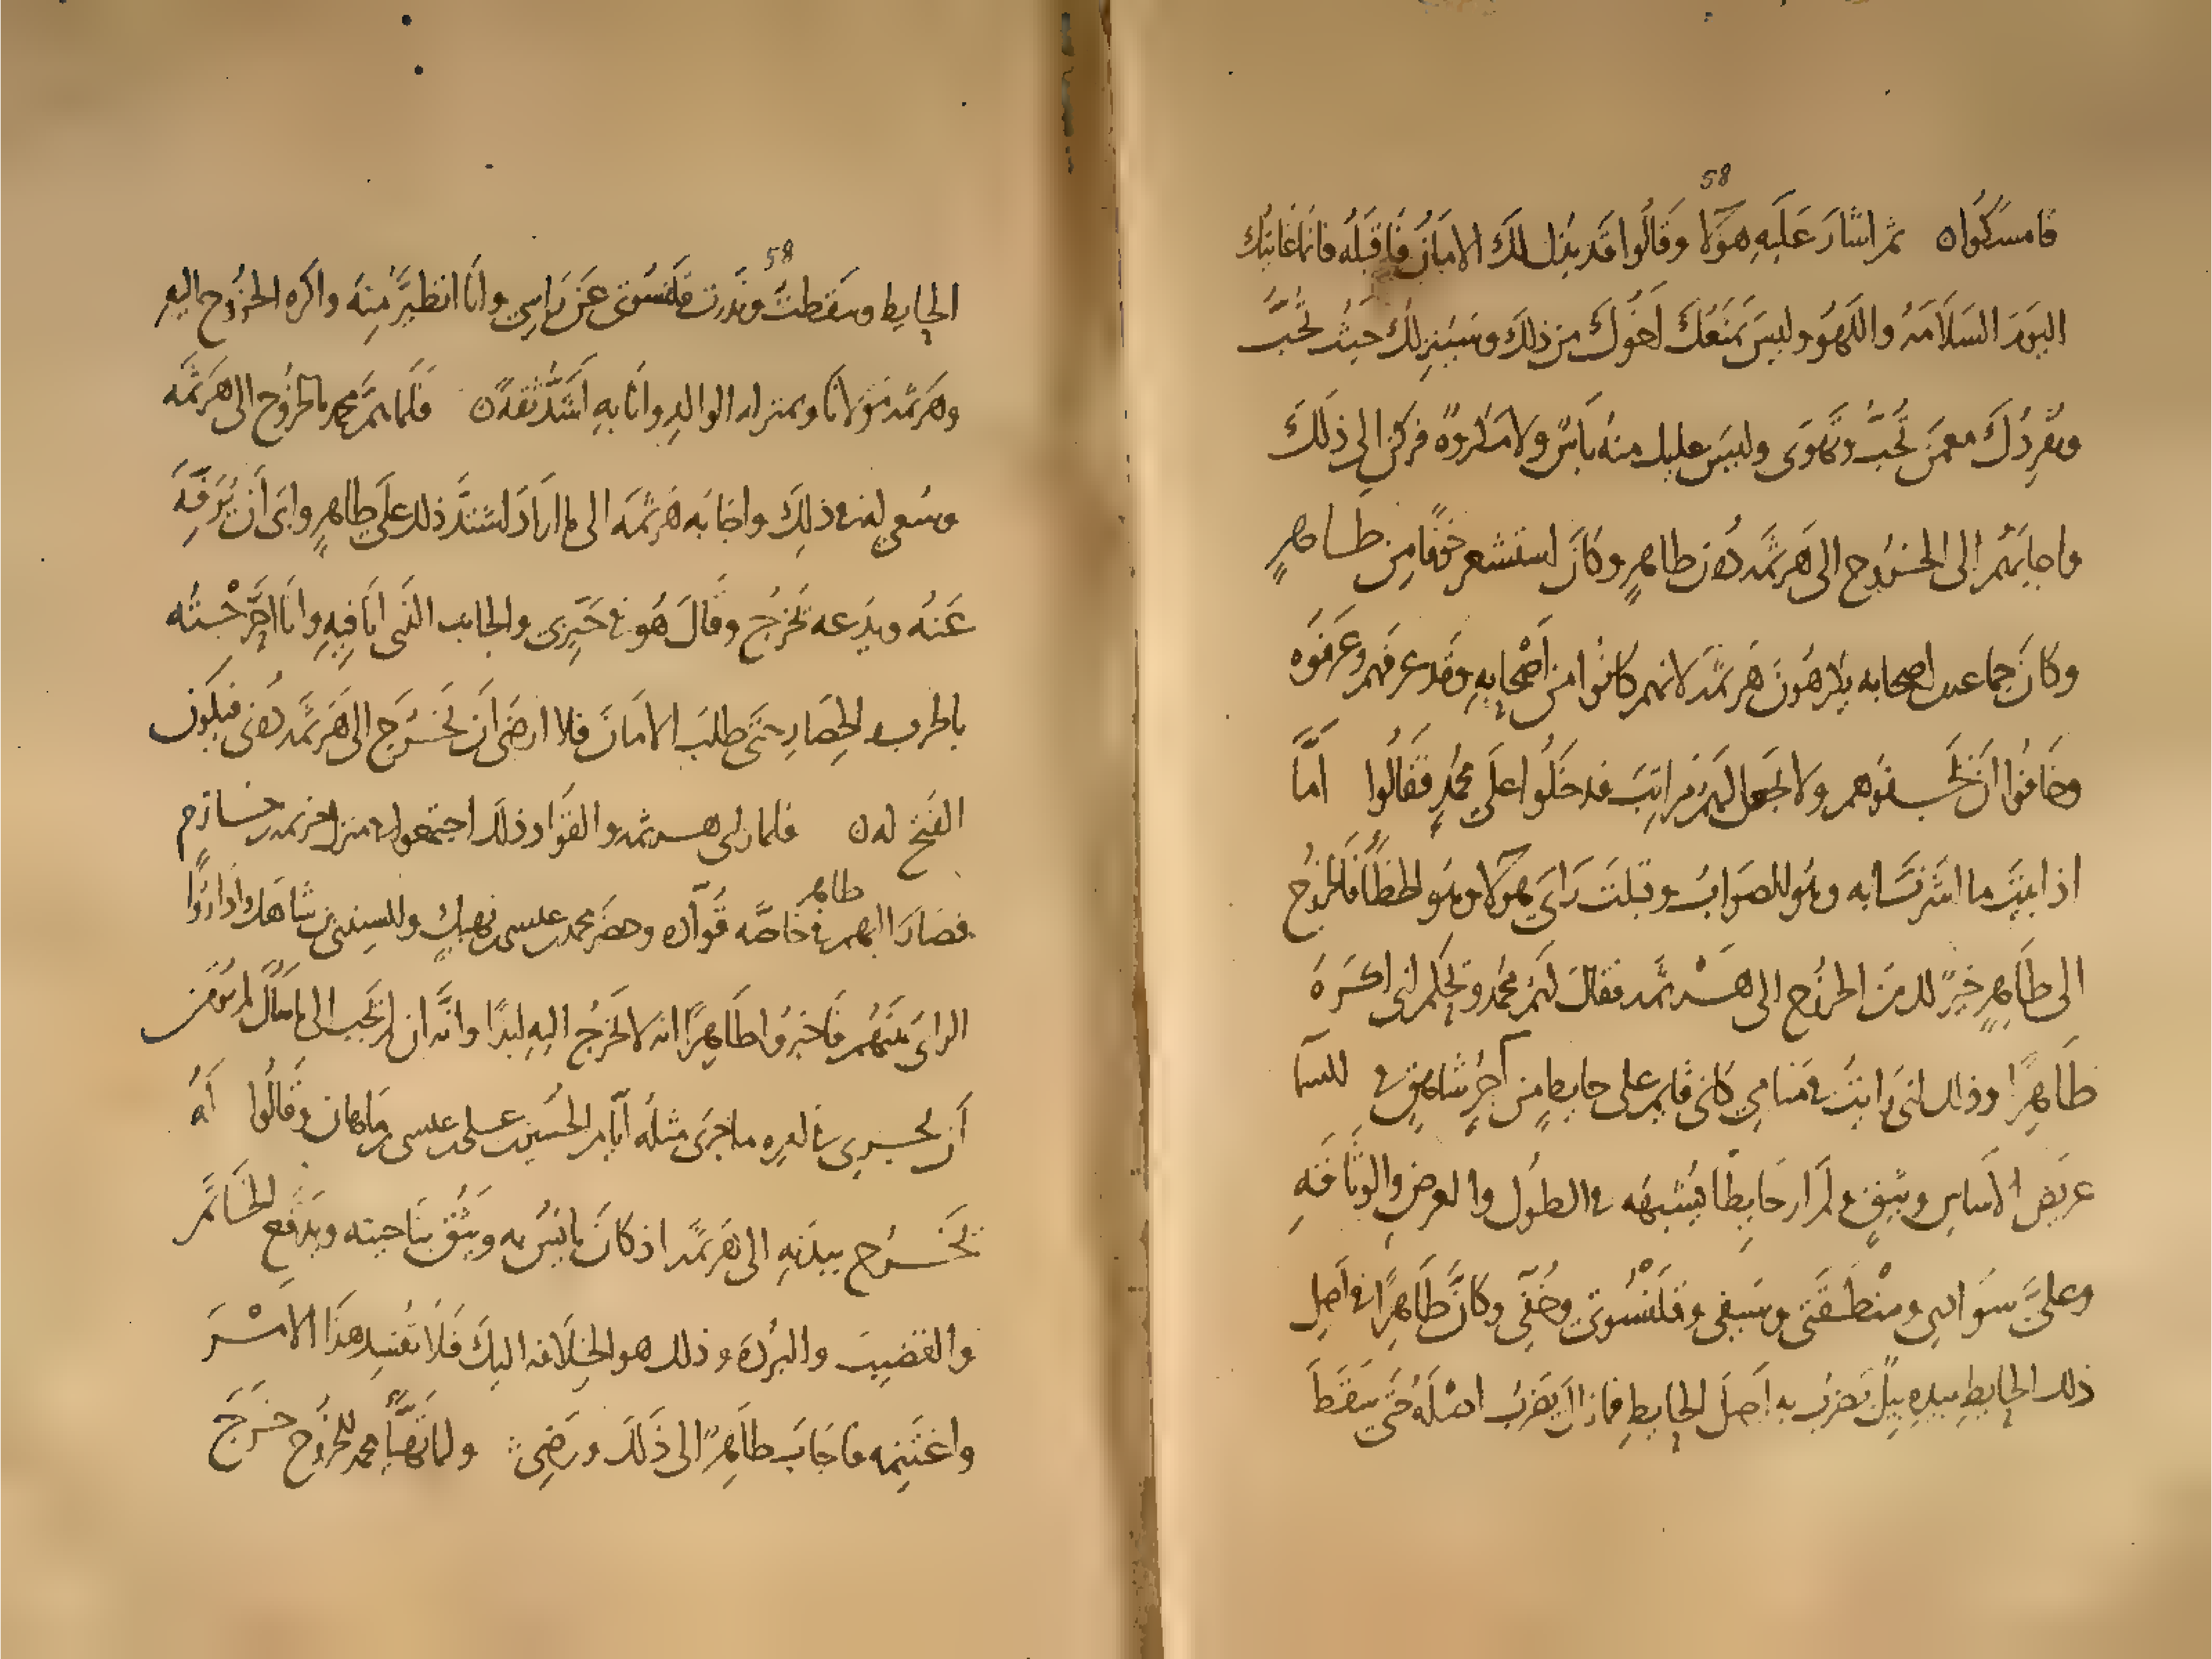 58
فامسكوا ن ثم اشار عليه هولا وقالوا قد بذل لك الامان فاقبله فانما غايتك
اليوم السلامة واللهو وليس يمنعك اخوك من ذلك وسينزلك حيث تحب
ويفردك مع من تحب وتهوى وليس عليك منه باس ولا مكروه فركن الى ذلك
واجابهم الى الخروج الى هرثمه دون طاهر وكان استشعر خوفا من طاهر
وكان جماعه اصحابه يكرهون هرثمه لانهم كانوا من اصحابه وقد عرفهم وعرفوه
وخافوا ان يجفوهم ولا يجعل لهم مراتب فدخلوا على محمد فقالوا اما
اذ ابيت ما اشرنا به وهو الصواب وقبلت راى هولا وهو الخطا فالخروج
الى طاهر خير لك من الخروج الى هرثمه فقال لهم محمد ويحكم انى اكره
طاهرا وذلك انى رايت في منامي كانى قايم على حايط من آجر شاهق في السما
عريض الاساس وثيق لم ار حايطا يشبهه في الطول والعرض والوثاقه
وعلى سوادى ومنطقتى وسيفى وقلنسوتى وخفى وكان طاهرا في اصل
ذلك الحايط بيده بيل يضرب به اصل الحايط فما زال يضرب اصله حتى سقط
58
الحايط وسقطت وندرت قلنسوتى عن راسي وانا اتطير منه واكره الخروج اليه
وهرثمه مولانا وبمنزله الوالد وانا به اشد ثقه ن فلما هم محمد بالخروج الى هرثمه
وسعي له في ذلك واجابه هرثمه الى ما اراد اشتد ذلك على طاهر وابى ان يرفه
عنه ويدعه يخرج وقال هو في حيزى والجانب الذى انا فيه وانا احرجته
بالحرب والحصار حتى طلب الامان فلا ارضى ان يخرج الى هرثمه دونى فيكون
الفتح له ن فلما راى هرثمه والقواد ذلك اجتمعوا في منزل خزيمه بن خازم
فصار اليهم طاهر في خاصه قواده وحضر محمد بن عيسى بن نهيك والسندى بن شاهك واداروا
الراى بينهم فاخبروا طاهرا انه لا يخرج اليه ابدا وانه ان لم يجب الى ما سال لم يومن
ان يجرى في امره ما جرى مثله ايام الحسين بن على بن عيسى بن ماهان وقالوا انه
يخرج ببدنه الى هرثمه اذ كان يانس به ويثق بناحيته ويدفع الخاتم
والقضيب والبرده وذلك هو الخلافه اليك فلا تفسد هذا الامر
واغتنمه فاجاب طاهر الى ذلك ورضى ولما تهيا محمد للخروج خرج